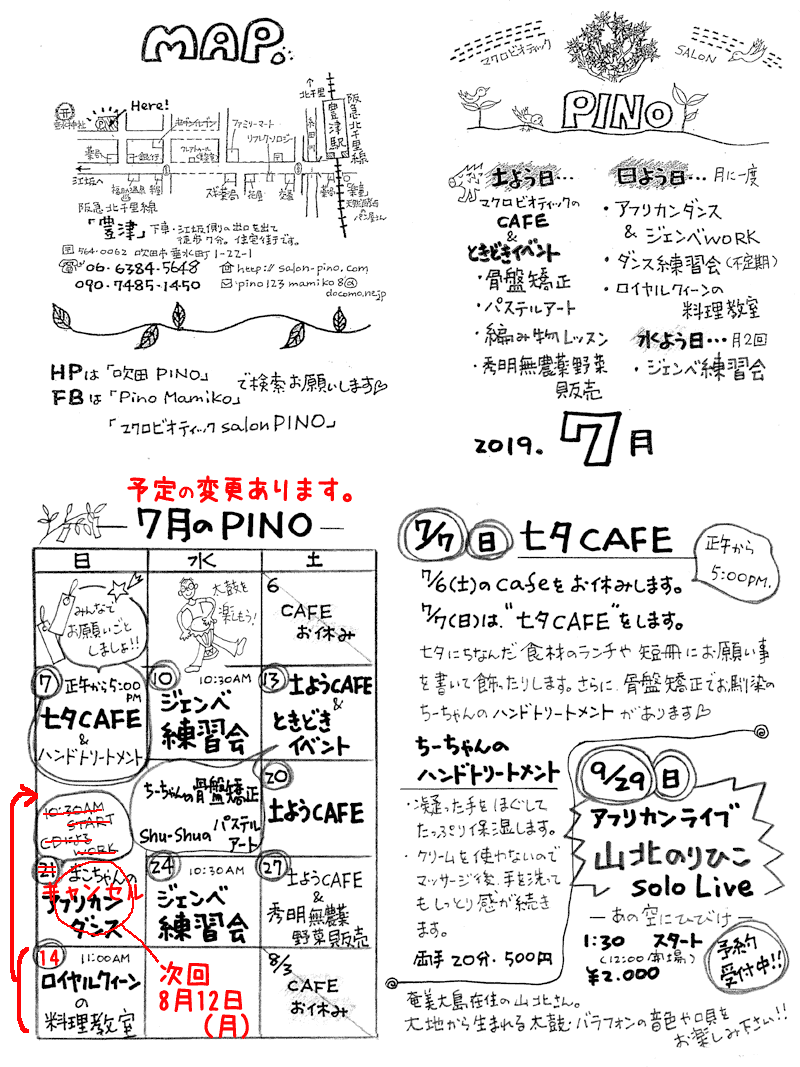 MAP.
Here!
セブンイレブン
ファミリーマート
リフレクソロジー
北千里
豊津駅
阪急北千里線
垂水神社
薬局
江坂へ
花屋
交番
阪急北千里線
「豊津」下車・江坂側の出口を出て
徒歩7分。住宅街です。
〒564-0062 吹田市垂水町1-22-1
☎06-6384-5648
http://salon-pino.com
090-7485-1450
✉pino123mamiko8@
docomo.ne.jp
HPは「吹田PINO」
FBは「Pino Mamiko」
で検索お願いします♡
「マクロビオティックsalonPINO」
マクロビオティック SALON
PINO
土よう日・・・
マクロビオティックの
CAFE
&
ときどきイベント
・骨盤矯正
・パステルアート
・編み物レッスン
・秀明無農薬野菜
販売
日よう日・・・月に一度
・アフリカンダンス
& ジェンベWORK
・ダンス練習会(不定期)
・ロイヤルクィーンの
料理教室
水よう日・・・月2回
・ジェンベ練習会
2019. 7月
予定の変更あります。
7月のPINO
日 水 土
みんなで
お願いごと
しましょ!!
太鼓を
楽しもう!
6
CAFE
お休み
7 正午から5:00
PM
七夕CAFE
&
ハンドトリートメント
10 10:30AM
ジェンベ
練習会
13 土ようCAFE
&
ときどき
イベント
10:30AM
START
WORK
ちーちゃんの骨盤矯正
Shu-Shuのパステル
アート
20
土ようCAFE
21 まこちゃんの
キャンセル
アフリカン
ダンス
24 10:30AM
ジェンベ
練習会
27 土ようCAFE
&
秀明無農薬
野菜販売
14 11:00AM
ロイヤルクィーン
の
料理教室
次回
8月12日
(月)
8/3
CAFE
お休み
7/7 日 七夕CAFE
正午から
5:00PM.
7/6(土)のcafeをお休みします。
7/7(日)は、"七夕CAFE"をします。
七夕にちなんだ食材のランチや短冊にお願い事
を書いて飾ったりします。さらに、骨盤矯正でお馴染の
ちーちゃんのハンドトリートメントがあります♡
ちーちゃんの
ハンドトリートメント
・凝った手をほぐして
たっぷり保湿します。
・クリームを使わないので
マッサージ後、手を洗って
もしっとり感が続き
ます。
両手20分・500円
9/29 日
アフリカンライブ
山北のりひこ
solo Live
―あの空にひびけ―
1:30 スタート
(12:00開場)
¥2.000
予約
受付中!!
奄美大島在住の山北さん。
大地から生まれる太鼓・バラフォンの音色や唄を
お楽しみ下さい!!